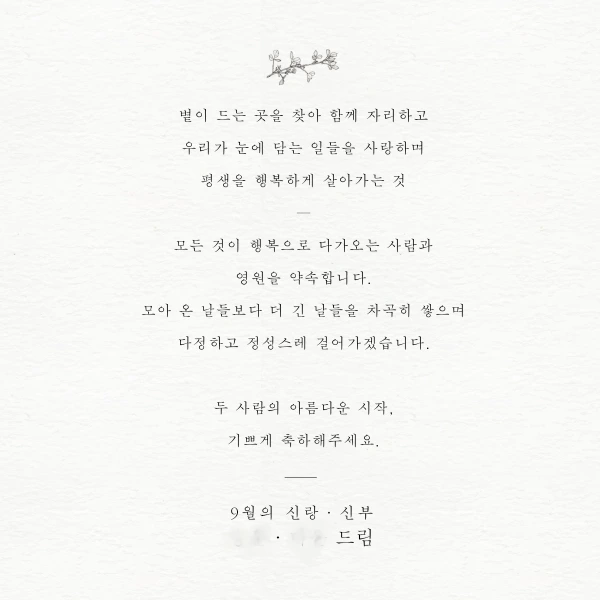 볕이 드는 곳을 찾아 함께 자리하고
우리가 눈에 담는 일들을 사랑하며
평생을 행복하게 살아가는 것
모든 것이 행복으로 다가오는 사람과
영원을 약속합니다.
모아 온 날들보다 더 긴 날들을 차곡히 쌓으며
다정하고 정성스레 걸어가겠습니다.
두 사람의 아름다운 시작,
기쁘게 축하해주세요.
9월의 신랑 · 신부
· 드림